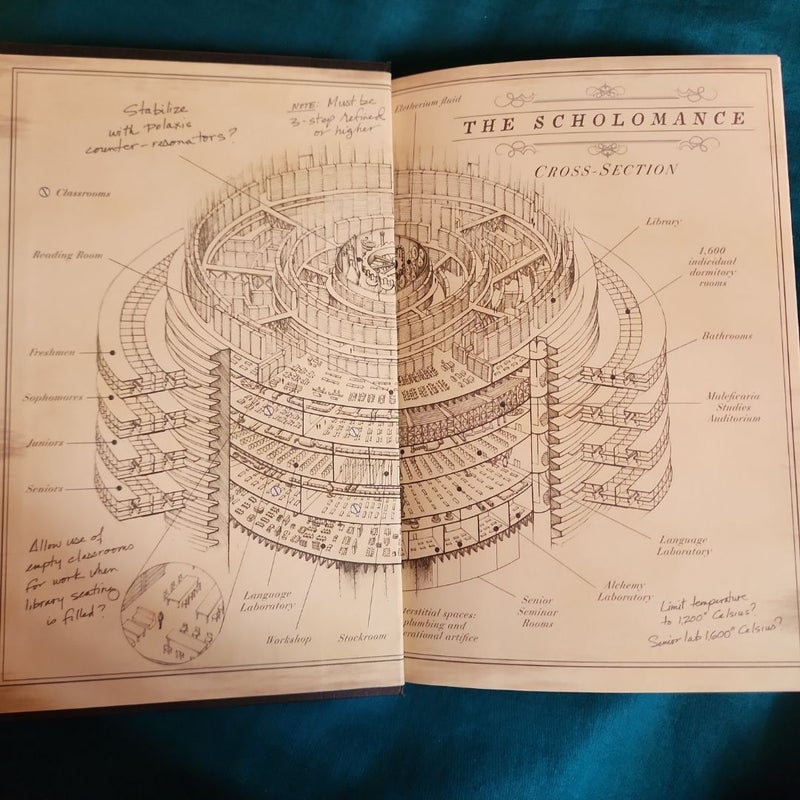 Stabilize
with polaxis
counter-resonators?
NOTE: Must be
3-step refined
or higher
Classrooms
Reading Room
Freshmen
Sophomores
Juniors
Seniors
Allow use of
empty classrooms
for work when
library seating
is filled?
Language
Laboratory
Workshop
Stockroom
Eletherium fluid
THE SCHOLOMANCE
CROSS-SECTION
Library
1,600
individual
dormitory
rooms
Bathrooms
Maleficaria
Studies
Auditorium
Language
Laboratory
Alchemy
Laboratory
Senior
Seminar
Rooms
terstitial spaces:
plumbing and
erational artifice
Limit temperature
to 1,200° Celsius?
Senior lab 1,600° Celsius?